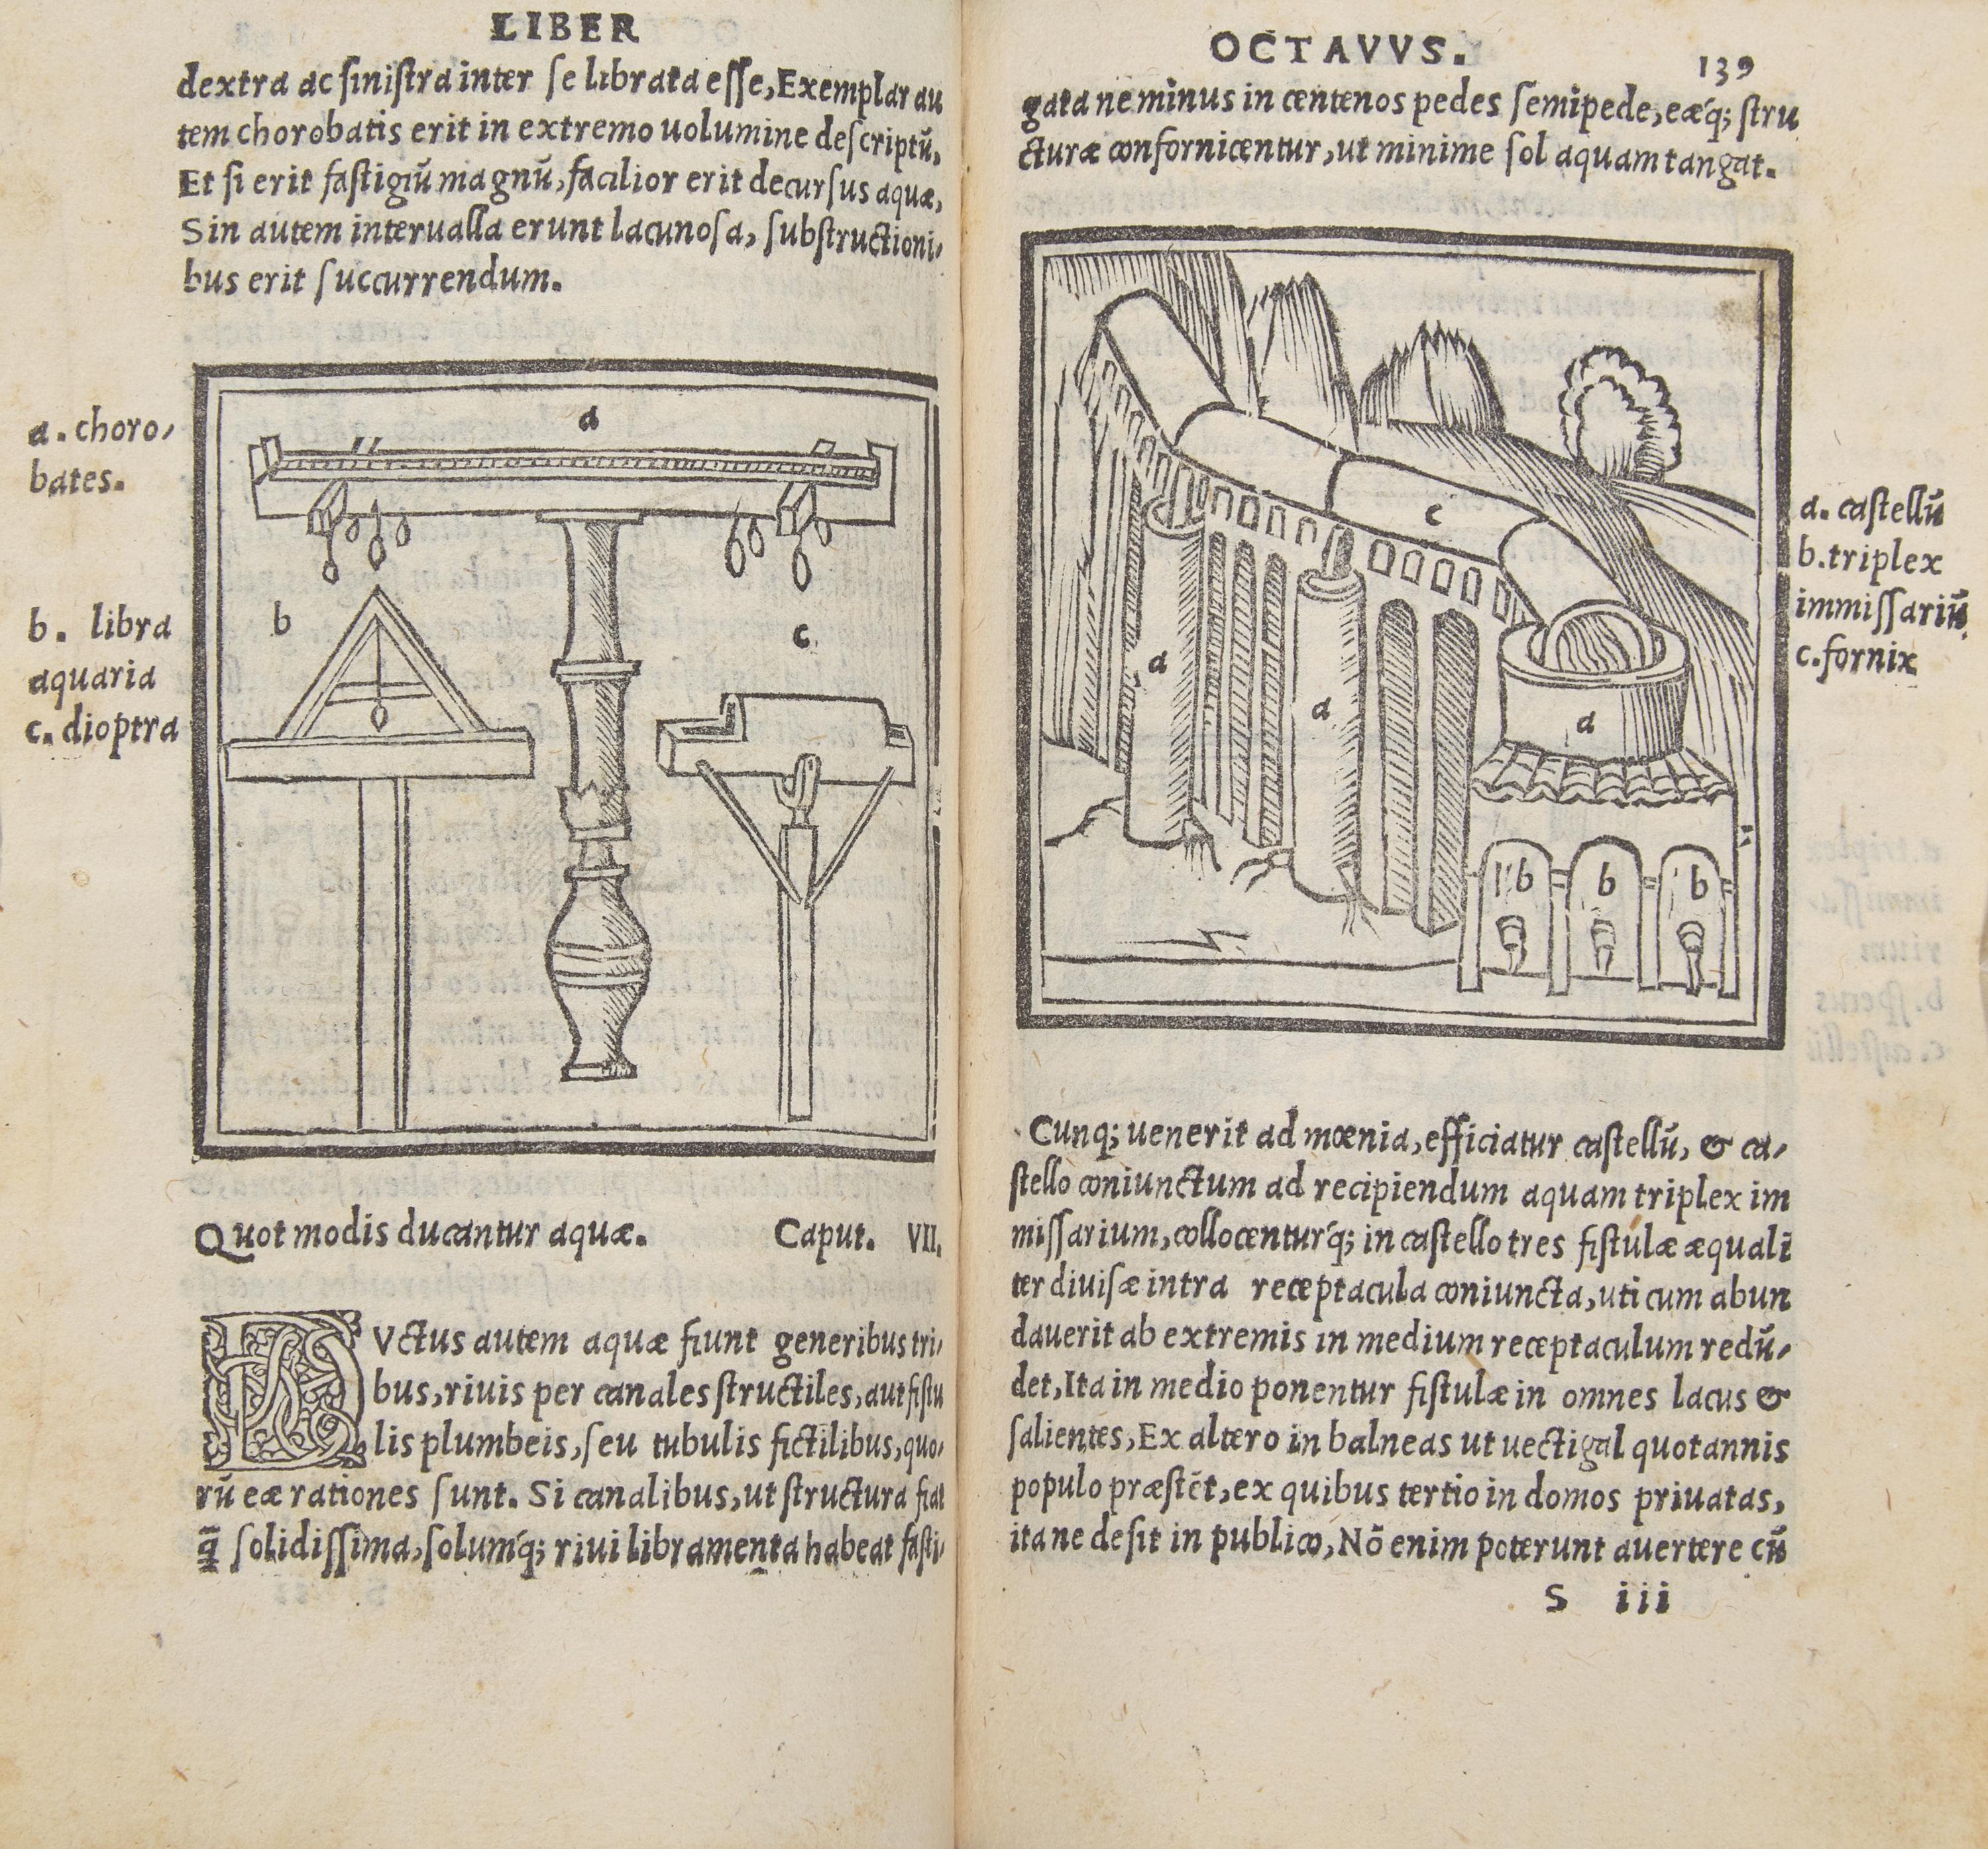 LIBER
dextra ac ſiniſtra inter ſe librata eſſe, Exemplar au
tem chorobatis erit in extremo uolumine deſcriptū,
Et ſi erit faſtigiū magnū, facilior erit decurſus aquæ,
Sin autem interualla erunt lacunoſa, ſubſtructioni,
bus erit ſuccurrendum.
a. choro,
bates.
b. libra
aquaria
c. dioptra
a
b
c
Quot modis ducantur aquæ. Caput. VII.
DVctus autem aquæ fiunt generibus tri,
bus, riuis per canales ſtructiles, aut fiſtu
lis plumbeis, ſeu tubulis fictilibus, quo,
rū eæ rationes ſunt. Si canalibus, ut ſtructura fiat
q̄ ſolidiſſima, ſolumq́; riui libramenta habeat faſti,
OCTAVVS. 139
gata ne minus in centenos pedes ſemipede, eæq́; ſtru
cturæ confornicentur, ut minime ſol aquam tangat.
c
a
a
a
b b b
a. caſtellū
b. triplex
immiſſariū.
c. fornix
Cunq; uenerit ad mœnia, efficiatur caſtellū, & ca,
ſtello coniunctum ad recipiendum aquam triplex im
miſſarium, collocenturq́; in caſtello tres fiſtulæ æquali
ter diuiſæ intra receptacula coniuncta, uti cum abun
dauerit ab extremis in medium receptaculum redū,
det, Ita in medio ponentur fiſtulæ in omnes lacus &
ſalientes, Ex altero in balneas ut uectigal quotannis
populo præſtēt, ex quibus tertio in domos priuatas,
ita ne deſit in publico, Nō enim poterunt auertere cū
S iii